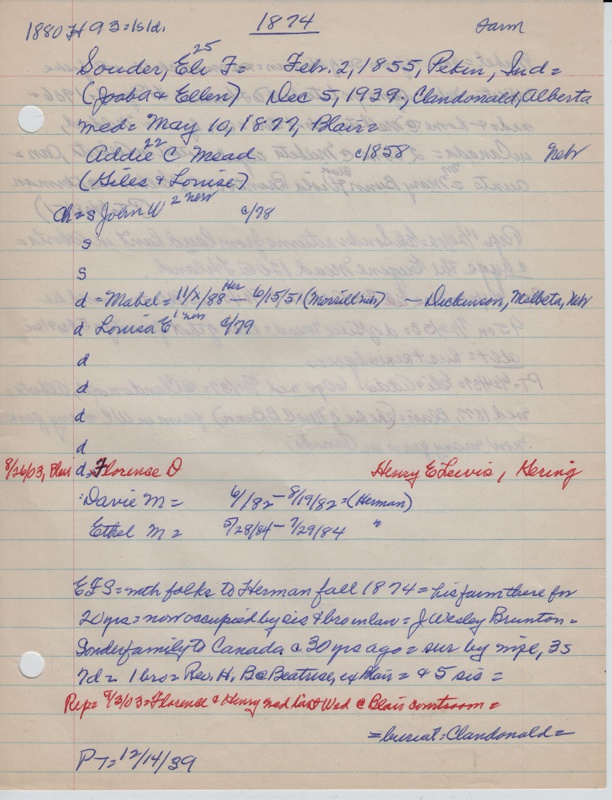 1880 H 93 = 1s 1d. 1874 Farm
25
Souder, Eli F = Feb. 2, 1855, Pekin, Ind =
(Jooba & Ellen) Dec 5, 1939, Clandonald, Alberta
med = May 10, 1877, Blair =
22
Addie C Mead c/1858 Nebr
(Hiles & Louise)
Ch = s John W 2 nebr c/78
s
s
d = Mabel = 11/X/88 Her — 6/15/51 (Morrill nebr) — Dickinson, Melbeta, Nebr
d Louisa E 1 nebr c/79
d
d
d
d
8/26/03, Blair d = Florence D Henry E Lewis, Gering
Davie M = 6/1/82 - 8/19/82 = (Herman)
Ethel M = 5/28/84 - 7/29/84 "
EFS = with folks to Herman fall 1874 = his farm there for
20 yrs = now occupied by sis & bro in law = J Wesley Brunton =
Souder family to Canada c 30 yrs ago = sur by wife, 3s
7d = 1 bro = Rev. H. B @ Beatrice, ex Blair = & 5 sis =
Rep = 9/3/03 = Florence & Henry med last Wed @ Blair courtroom =
= burial = Clandonald =
P-T = 12/14/39